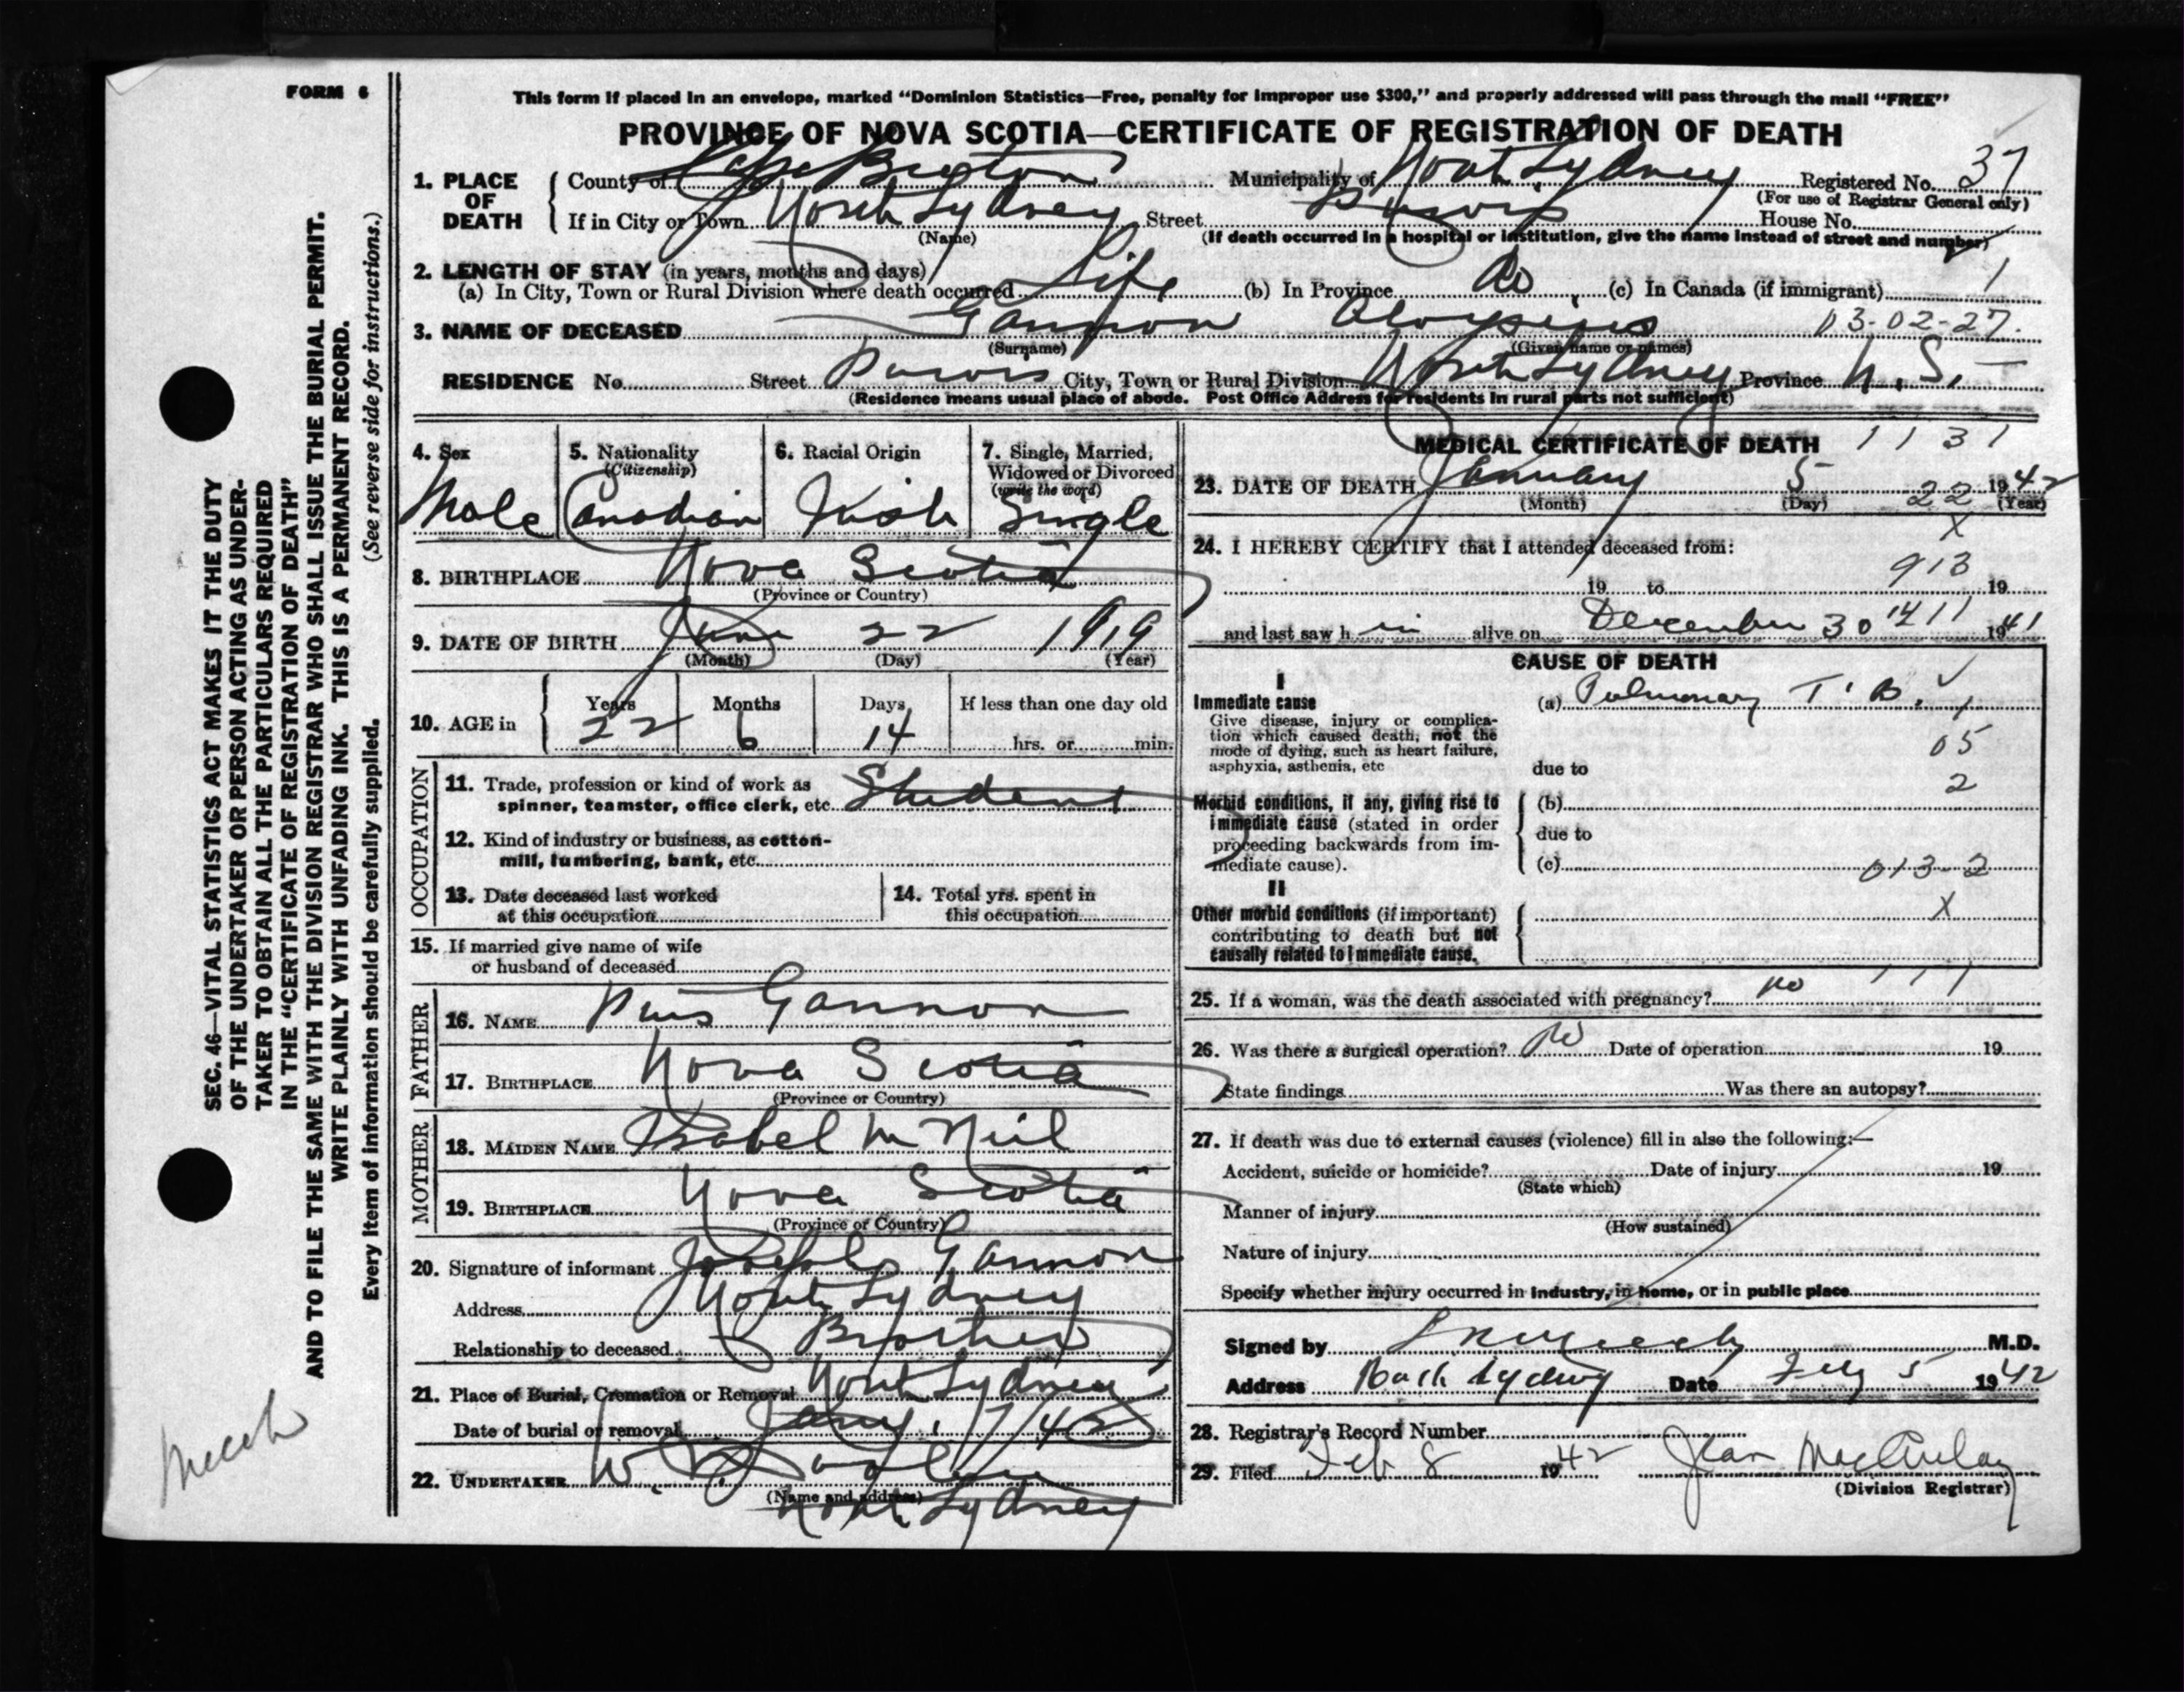 FORM 6
This form if placed in an envelope, marked “Dominion Statistics—Free, penalty for improper use $300,” and properly addressed will pass through the mail “FREE”
PROVINCE OF NOVA SCOTIA—CERTIFICATE OF REGISTRATION OF DEATH
1. PLACE OF DEATH
County of Cape Breton Municipality of North Sydney Registered No. 37
(For use of Registrar General only)
If in City or Town North Sydney Street Purvis House No.
(Name)
(If death occurred in a hospital or institution, give the name instead of street and number)
2. LENGTH OF STAY (in years, months and days)
(a) In City, Town or Rural Division where death occurred Life (b) In Province Do (c) In Canada (if immigrant) 1
3. NAME OF DECEASED Gannon Aloysius 03-02-27.
(Surname) (Given name or names)
RESIDENCE No. Street Purvis City, Town or Rural Division North Sydney Province N.S.
(Residence means usual place of abode. Post Office Address for residents in rural parts not sufficient)
4. Sex
Male
5. Nationality
(Citizenship)
Canadian
6. Racial Origin
Irish
7. Single, Married,
Widowed or Divorced
(write the word)
Single
8. BIRTHPLACE Nova Scotia
(Province or Country)
9. DATE OF BIRTH June 22 1919
(Month) (Day) (Year)
10. AGE in
Years Months Days If less than one day old
22 6 14 hrs. or min.
OCCUPATION
11. Trade, profession or kind of work as
spinner, teamster, office clerk, etc. Student
12. Kind of industry or business, as cotton-
mill, lumbering, bank, etc.
13. Date deceased last worked
at this occupation
14. Total yrs. spent in
this occupation
15. If married give name of wife
or husband of deceased
FATHER
16. NAME Pius Gannon
17. BIRTHPLACE Nova Scotia
(Province or Country)
MOTHER
18. MAIDEN NAME Isabel McNeil
19. BIRTHPLACE Nova Scotia
(Province or Country)
20. Signature of informant Joseph Gannon
Address North Sydney
Relationship to deceased Brother
21. Place of Burial, Cremation or Removal North Sydney
Date of burial or removal Jany. 7/42
22. UNDERTAKER W.
(Name and address)
North Sydney
MEDICAL CERTIFICATE OF DEATH 1131
23. DATE OF DEATH January 5 1942
(Month) (Day) 22 (Year)
X
24. I HEREBY CERTIFY that I attended deceased from:
913
19 to 19
and last saw h im alive on December 30 1411 1941
CAUSE OF DEATH
I
Immediate cause
Give disease, injury or complica-
tion which caused death, not the
mode of dying, such as heart failure,
asphyxia, asthenia, etc
(a) Pulmonary T.B. 1
05
due to
2
Morbid conditions, if any, giving rise to
immediate cause (stated in order
proceeding backwards from im-
mediate cause).
(b)
due to
(c) 013-2
II
Other morbid conditions (if important)
contributing to death but not
causally related to immediate cause.
X
25. If a woman, was the death associated with pregnancy? no 111
26. Was there a surgical operation? No Date of operation 19
State findings Was there an autopsy?
27. If death was due to external causes (violence) fill in also the following:—
Accident, suicide or homicide? Date of injury 19
(State which)
Manner of injury
(How sustained)
Nature of injury
Specify whether injury occurred in industry, in home, or in public place
Signed by M.D.
Address North Sydney Date Feby 5 1942
28. Registrar's Record Number
29. Filed Feb 8 1942 Jean MacAulay
(Division Registrar)
SEC. 46—VITAL STATISTICS ACT MAKES IT THE DUTY
OF THE UNDERTAKER OR PERSON ACTING AS UNDER-
TAKER TO OBTAIN ALL THE PARTICULARS REQUIRED
IN THE “CERTIFICATE OF REGISTRATION OF DEATH”
AND TO FILE THE SAME WITH THE DIVISION REGISTRAR WHO SHALL ISSUE THE BURIAL PERMIT.
WRITE PLAINLY WITH UNFADING INK. THIS IS A PERMANENT RECORD.
Every item of information should be carefully supplied. (See reverse side for instructions.)
Meech